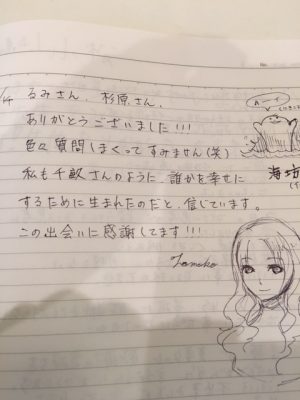 るみさん、杉原さん、
ありがとうございました!!!
色々質問しまくってすみません(笑)
私も千畝さんのように、誰かを幸せに
するために生まれたのだと、信じています。
この出会いに感謝してます!!!
No.